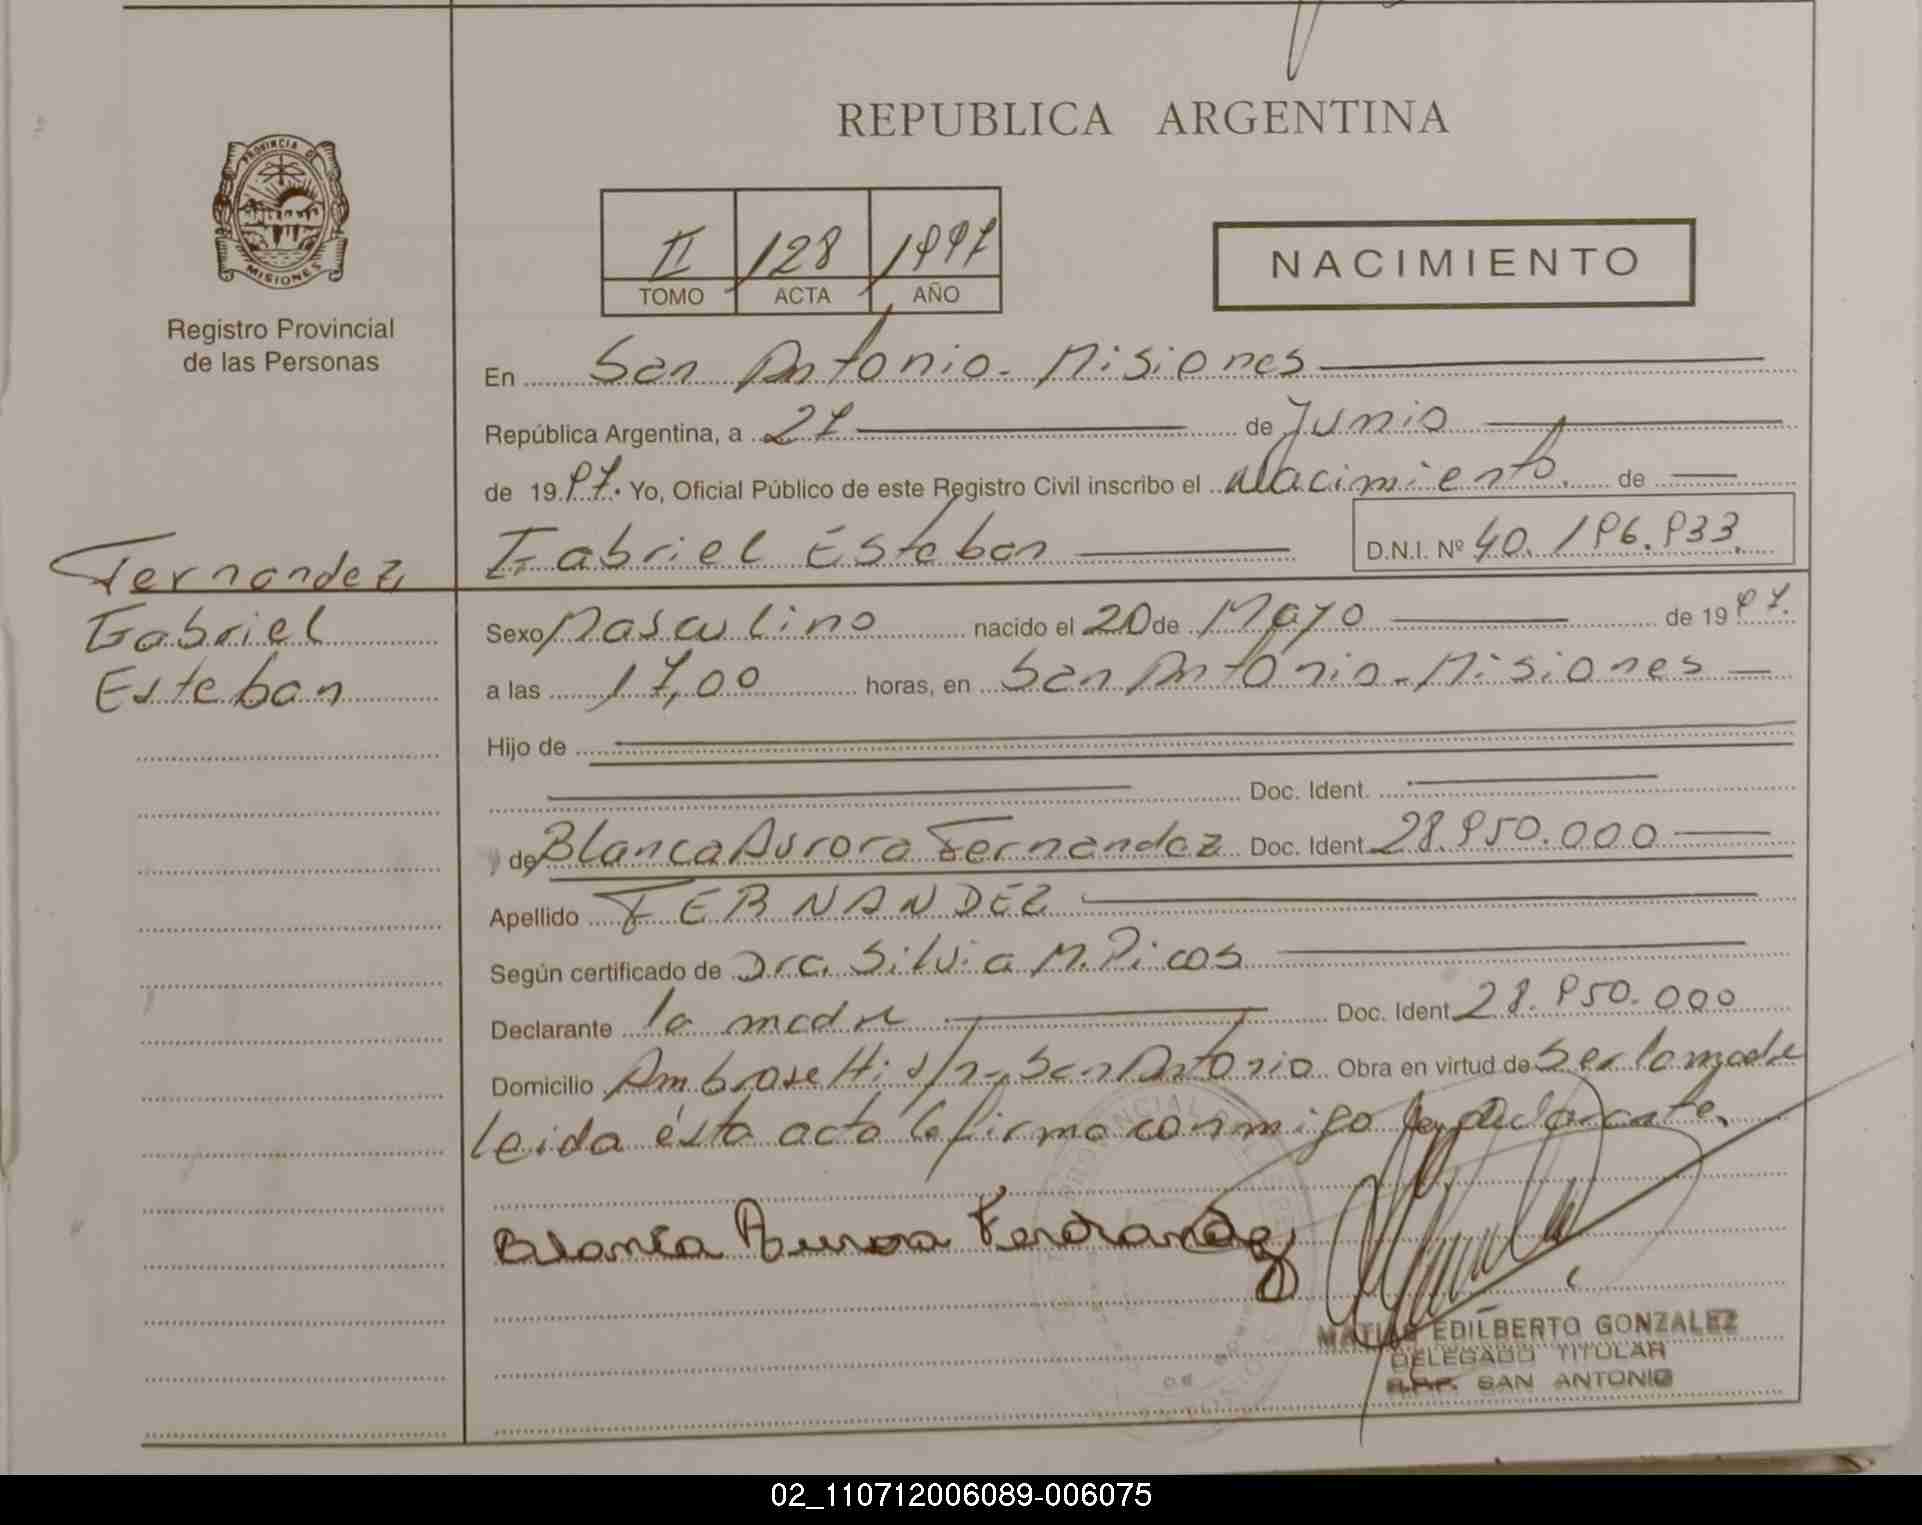 REPUBLICA ARGENTINA
PROVINCIA DE
MISIONES
Registro Provincial
de las Personas
II 128 1997
TOMO ACTA AÑO
NACIMIENTO
En San Antonio - Misiones
República Argentina, a 27 de Junio
de 1997. Yo, Oficial Público de este Registro Civil inscribo el Nacimiento. de
Gabriel Esteban D.N.I. Nº 40.196.933.
Fernandez
Gabriel
Esteban
Sexo Masculino nacido el 20 de Mayo de 1997.
a las 17,00 horas, en San Antonio - Misiones
Hijo de
Doc. Ident.
y de Blanca Aurora Fernandez Doc. Ident. 28.950.000
Apellido FERNANDEZ
Según certificado de Dra. Silvia M. Picos
Declarante la madre Doc. Ident. 28.950.000
Domicilio Ambrosetti s/n - San Antonio Obra en virtud de ser la madre
Leida ésta acta la firma conmigo la declarante.
Blanca Aurora Fernandez
MATIAS EDILBERTO GONZALEZ
DELEGADO TITULAR
R.P.P. SAN ANTONIO
02_110712006089-006075